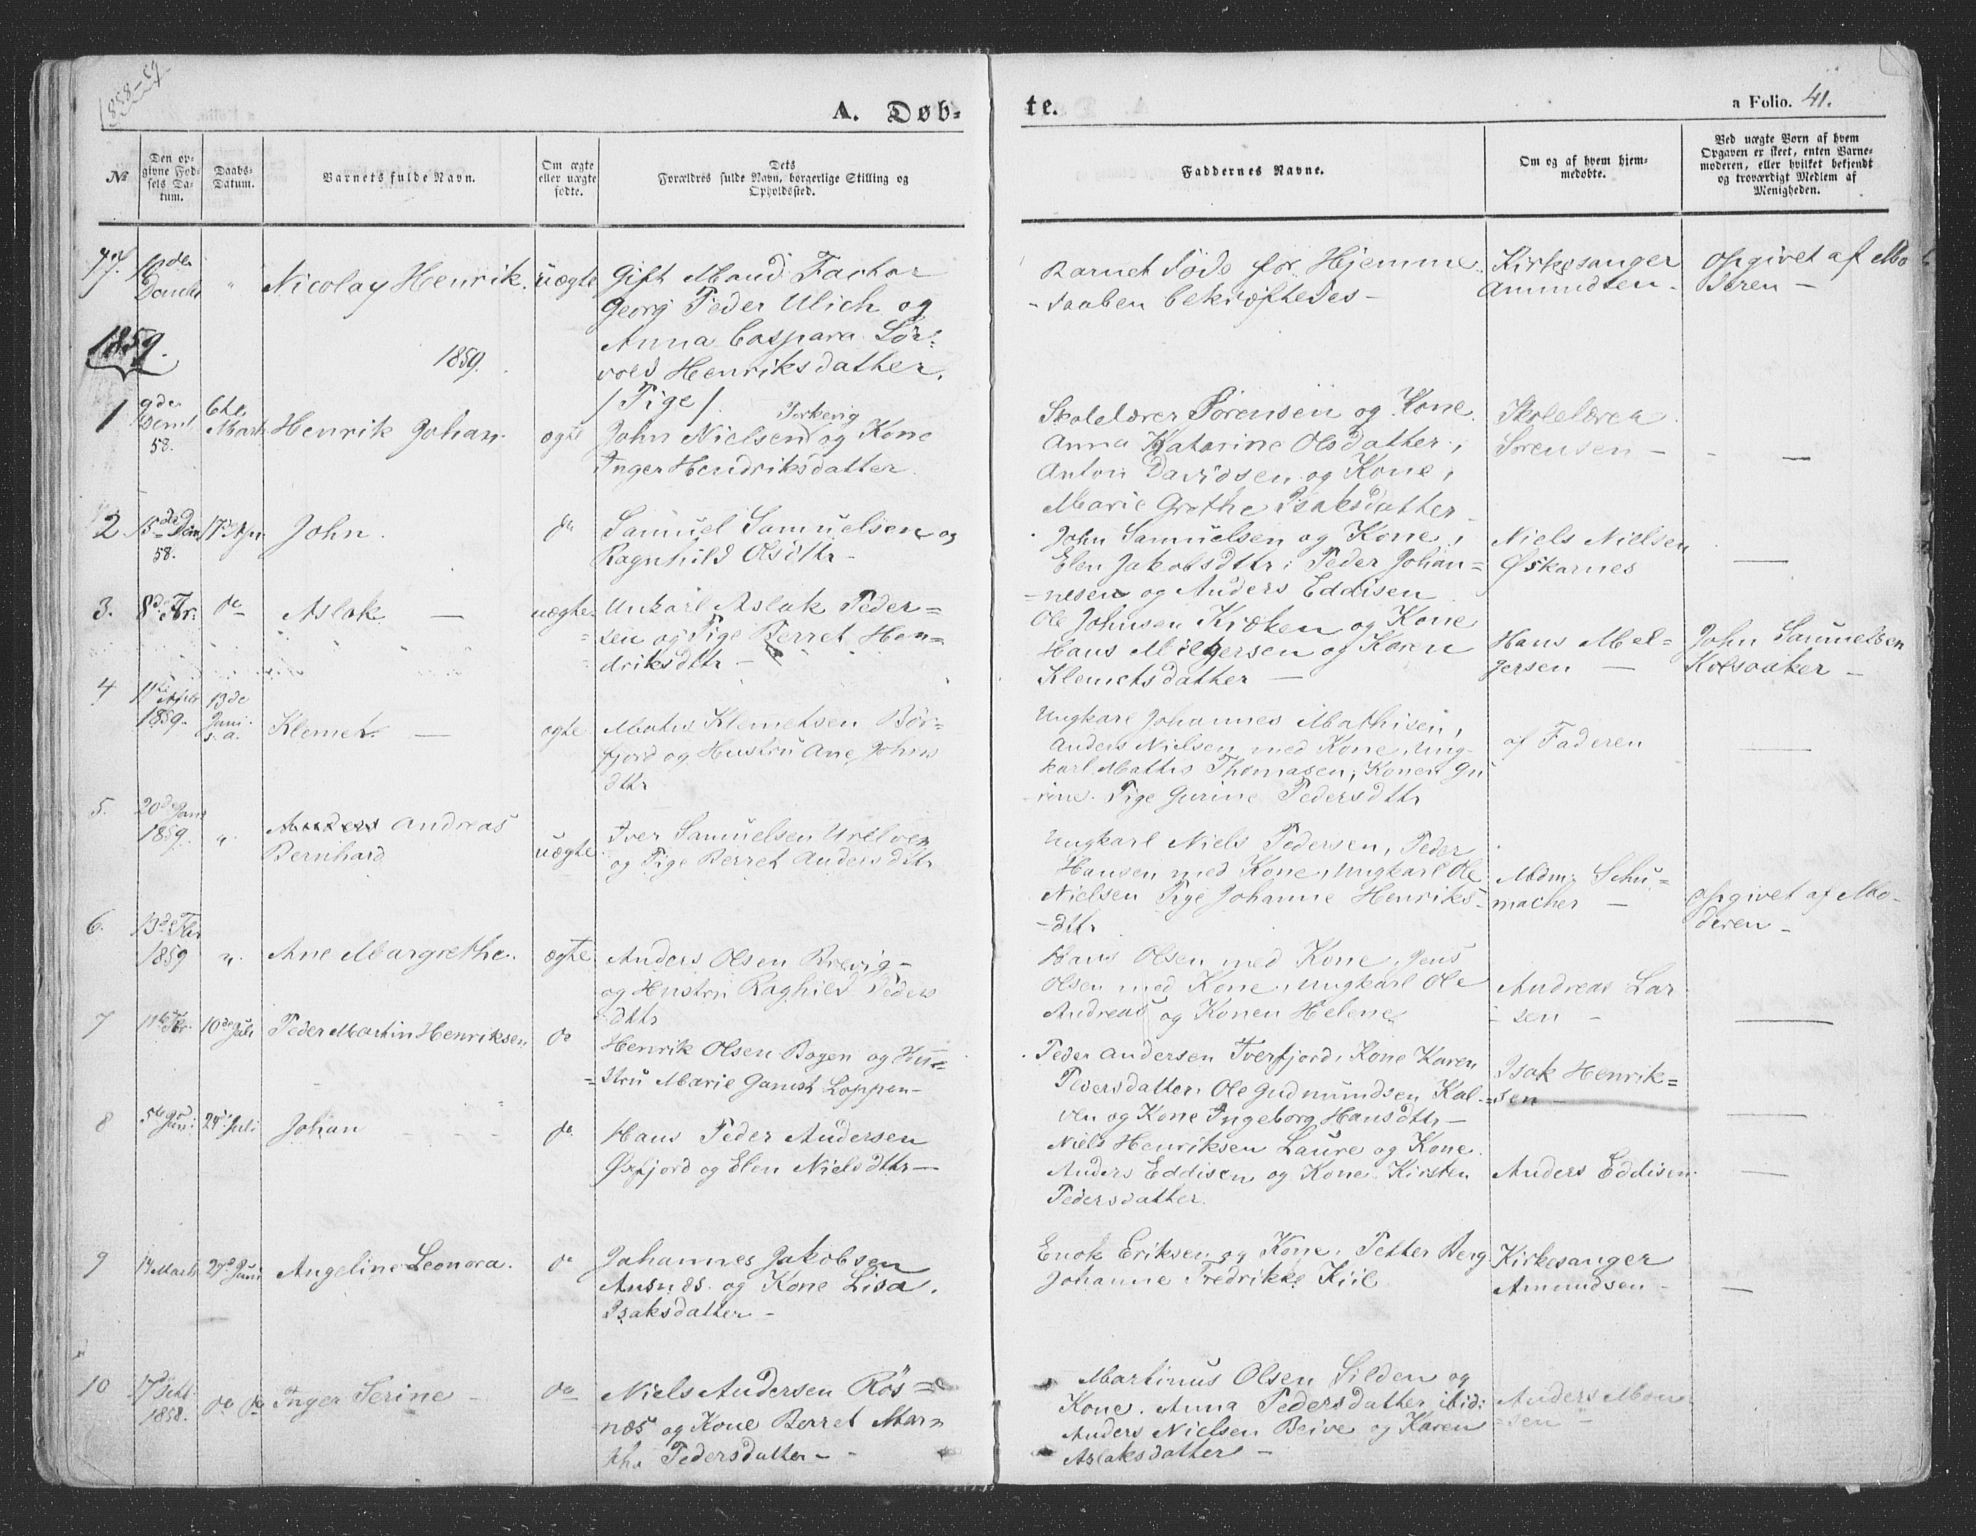 1858-59
A. Døb-
te.
a Folio. 41.
№
Den op-
givne Fød-
sels Da-
tum.
Daabs-
Datum.
Barnets fulde Navn.
Om ægte
eller uægte
fødte.
Dets
Forældres fulde Navn, borgerlige Stilling og
Opholdssted.
Faddernes Navne.
Om og af hvem hjem-
medøbte.
Ved uægte Børn af hvem
Opgaven er skeet, enten Barne-
moderen, eller hvilket bekjendt
og troværdigt Medlem af
Menigheden.
77.
"
Nicolay Henrik.
uægte
Gift Mand Factor
Georg Peder Ulich og
Anna Caspara Sør-
vold Henriksdatter,
/Pige/.
Barnet døde før Hjemme
-daaben bekræftedes -
Kirkesanger
Amundsen -
Opgivet af Mo
deren -
1859.
1859.
1
9de
58.
6te
Marts
Henrik Johan.
ægte
John Nielsen og Kone
Inger Hendriksdatter.
Skolelærer Sørensen og Kone
Anna Katarine Olsdatter,
Anton Davidsen og Kone,
Marie Grethe Isaksdatter
Skolelærer
Sørensen -
-
2
15de
58.
17d Apr.
John.
do
Samuel Samuelsen og
Ragnhild Olsdttr -
John Samuelsen og Kone,
Elen Jakobsdttr, Peder Johan=
=nesen og Anders Eddisen
Niels Nielsen
Øskarnes
-
3.
8d Fbr.
do
Aslak -
uægte
Unkarl Aslak Peder=
sen og Pige Berret Hen=
driksdttr -
Ole Johnsen Kroken og Kone
Hans Melgersen og Karen
Klemetsdatter -
Hans Mel=
gersen -
John Samuelsen
-
4
11te April
1859.
13de
Juni
s.a.
Klemet -
ægte
Matis Klemetsen Bør-
fjord og Hustru Ane Johns
dttr
Ungkarl Johannes Mathisen,
Anders Nielsen med Kone, Ung-
karl Mattis Thomasen, Konen Gu
rine. Pige Gurine Pedersdttr
af Faderen
-
5.
20de Jani
1859.
"
Anders Andreas
Bernhard
uægte
Iver Samuelsen
og Pige Berret Andersdttr
Ungkarl Niels Pedersen, Peder
Hansen med Kone, Ungkarl Ole
Nielsen Pige Johanne Henriks-
-dttr
Mdm: Schu=
macher -
Opgivet af Mo-
deren -
6.
13de Fbr
1859
"
Ane Margrethe.
ægte
Anders Olsen Brevig -
og Hustru Raghild Peders
dttr
Hans Olsen med Kone, Jens
Olsen med Kone, Ungkarl Ole
Andreas og Konen Helene
Andreas Lar
- sen -
-
7
11te Fbr.
10de Juli
Peder Martin Henriksen
do
Henrik Olsen Bogen og Hu=
=stru Marie Gamst Loppen -
Peder Andersen Tverfjord, Kone Karen
Pedersdatter, Ole Gudmundsen Kal-
ven og Kone Ingeborg Hansdttr -
Isak Henrik=
=sen
-
8
5te Juni
24d Juli
Johan
do
Hans Peder Andersen
Øxfjord og Elen Nielsdttr -
Niels Henriksen Laure og Kone
Anders Eddisen og Kone Kirsten
Pedersdatter.
Anders Eddisen
-
9
14 Marts
27d Juni
Angeline Leonora.
do
Johannes Jakobsen
Ansnæs. og Kone Lisa
Isaksdatter -
Enok Eriksen og Kone, Petter Berg
Johanne Fredrikke Kiil
Kirkesanger
Amundsen -
-
10
17d
1858.
do
do
Inger Serine -
do
Niels Andersen Røs=
næs og Kone Berret Mar=
the Pedersdatter -
Martinus Olsen Silden og
Kone. Anna Pedersdatter ibid:
Anders Nielsen Beive og Karen
Aslaksdatter -
Anders Mon
=sen -